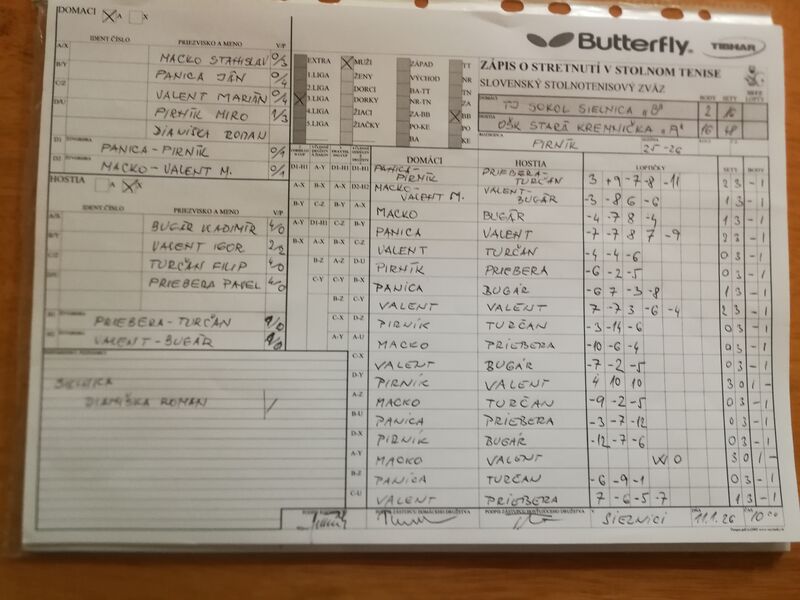 DOMÁCI A X
Butterfly. TIBHAR
ZÁPIS O STRETNUTÍ V STOLNOM TENISE
SLOVENSKÝ STOLNOTENISOVÝ ZVÄZ
IDENT ČÍSLO PRIEZVISKO A MENO V/P
A/X MACKO STANISLAV 0/3
B/Y PANICA JÁN 0/4
C/Z VALENT MARIÁN 0/4
D/U PIRNÍK MIRO 1/3
DIANIŠKA ROMAN
D1 PANICA-PIRNÍK 0/1
D2 MACKO-VALENT M. 0/1
EXTRA MUŽI ZÁPAD TT
1.LIGA ŽENY VÝCHOD NR
2.LIGA DORCI BA-TT TN
3.LIGA DORKY NR-TN ZA
4.LIGA ŽIACI ZA-BB BB
5.LIGA ŽIAČKY PO-KE PO
BA KE
DOMÁCI TJ SOKOL SIELNICA "B" BODY 2 SETY 16
HOSTIA OŠK STARÁ KREMNIČKA "A" 16 48
ROZHODCA PIRNÍK 25-26
HOSTIA A X
IDENT ČÍSLO PRIEZVISKO A MENO V/P
BUGÁR VLADIMÍR 4/0
VALENT IGOR 2/2
TURČAN FILIP 4/0
PRIEBERA PAVEL 4/0
PRIEBERA-TURČAN 1/0
VALENT-BUGÁR 1/0
SIELNICA
DIANIŠKA ROMAN /
DOMÁCI HOSTIA LOPTIČKY SETY BODY
D1-H1 PANICA-PIRNÍK PRIEBERA-TURČAN 3 +9 -7 -8 -11 2 3 - 1
D2-H2 MACKO-VALENT M. VALENT-BUGÁR -3 -8 6 -6 1 3 - 1
MACKO BUGÁR -4 -7 8 -4 1 3 - 1
PANICA VALENT -7 -7 8 7 -9 2 3 - 1
VALENT TURČAN -4 -4 -6 0 3 - 1
PIRNÍK PRIEBERA -6 -2 -5 0 3 - 1
PANICA BUGÁR -6 7 -3 -8 1 3 - 1
VALENT VALENT 7 -7 3 -6 -4 2 3 - 1
PIRNÍK TURČAN -3 -14 -6 0 3 - 1
MACKO PRIEBERA -10 -6 -4 0 3 - 1
VALENT BUGÁR -7 -2 -5 0 3 - 1
PIRNÍK VALENT 4 10 10 3 0 1 -
MACKO TURČAN -9 -2 -5 0 3 - 1
PANICA PRIEBERA -3 -7 -12 0 3 - 1
PIRNÍK BUGÁR -12 -7 -6 0 3 - 1
MACKO VALENT WO 3 0 1 -
PANICA TURČAN -6 -9 -1 0 3 - 1
VALENT PRIEBERA 7 -6 -5 -7 1 3 - 1
PODPIS ZÁSTUPCU DOMÁCEHO DRUŽSTVA PODPIS ZÁSTUPCU HOSŤUJÚCEHO DRUŽSTVA V SIELNICI DŇA 11.1.26 ČAS 10:00